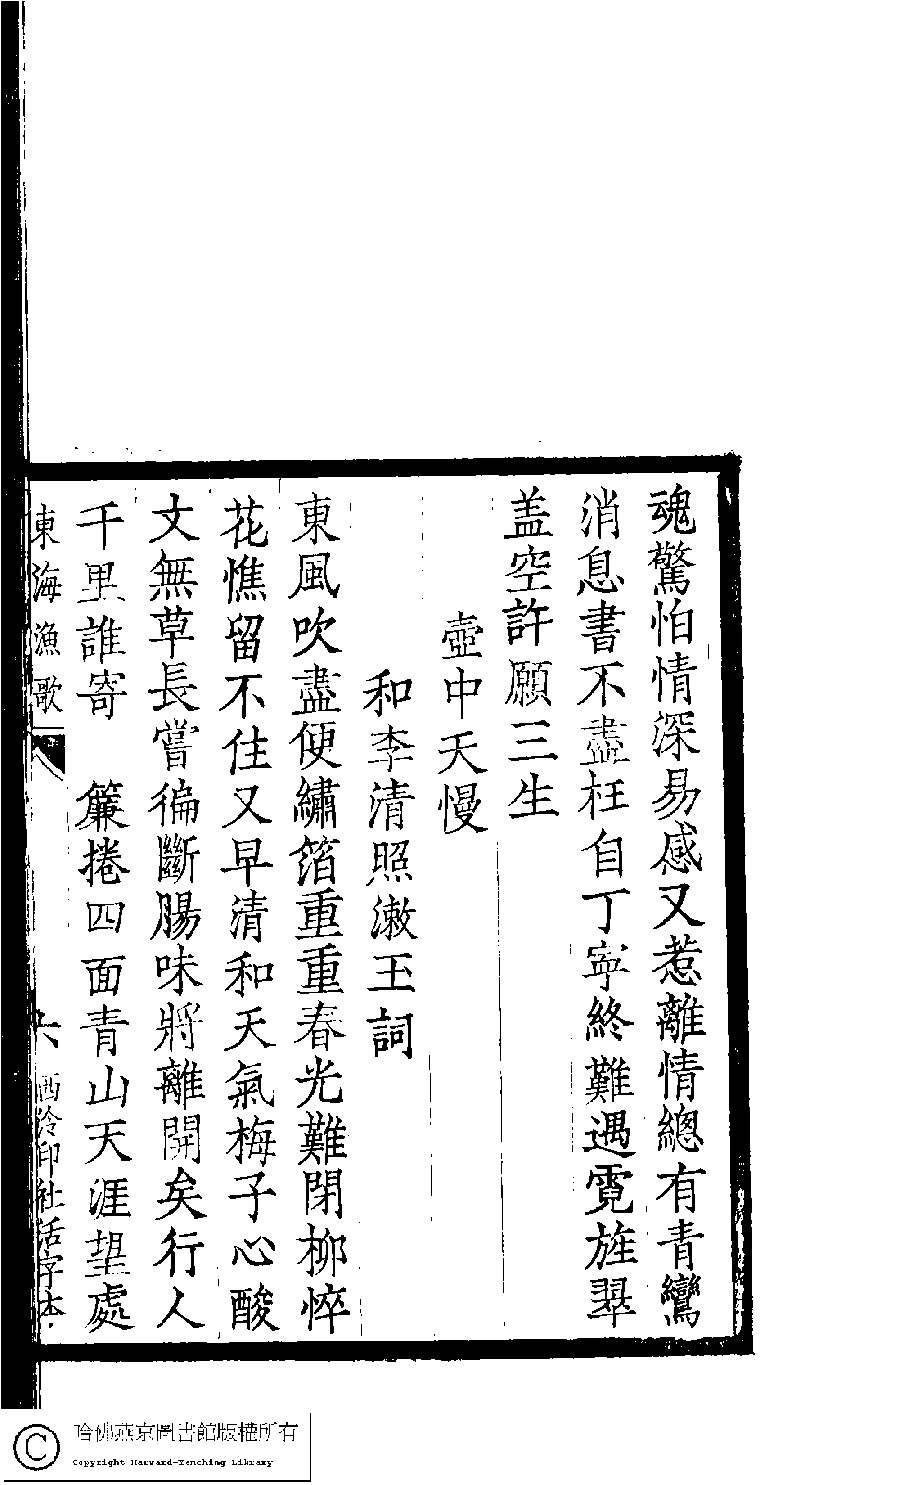 魂驚怕情深易感又惹離情總有青鸞
消息書不盡枉自丁寧終難遇霓旌翠
盖空許願三生
壺中天慢
和李清照漱玉詞
東風吹盡便繡箔重重春光難閉柳悴
花憔留不住又早清和天氣梅子心酸
文無草長嘗徧斷腸味將離開矣行人
千里誰寄　簾捲四面青山天涯望處
東海漁歌　六　西泠印社活字本
哈佛燕京圖書館版權所有
Copyright Harvard-Yenching Library